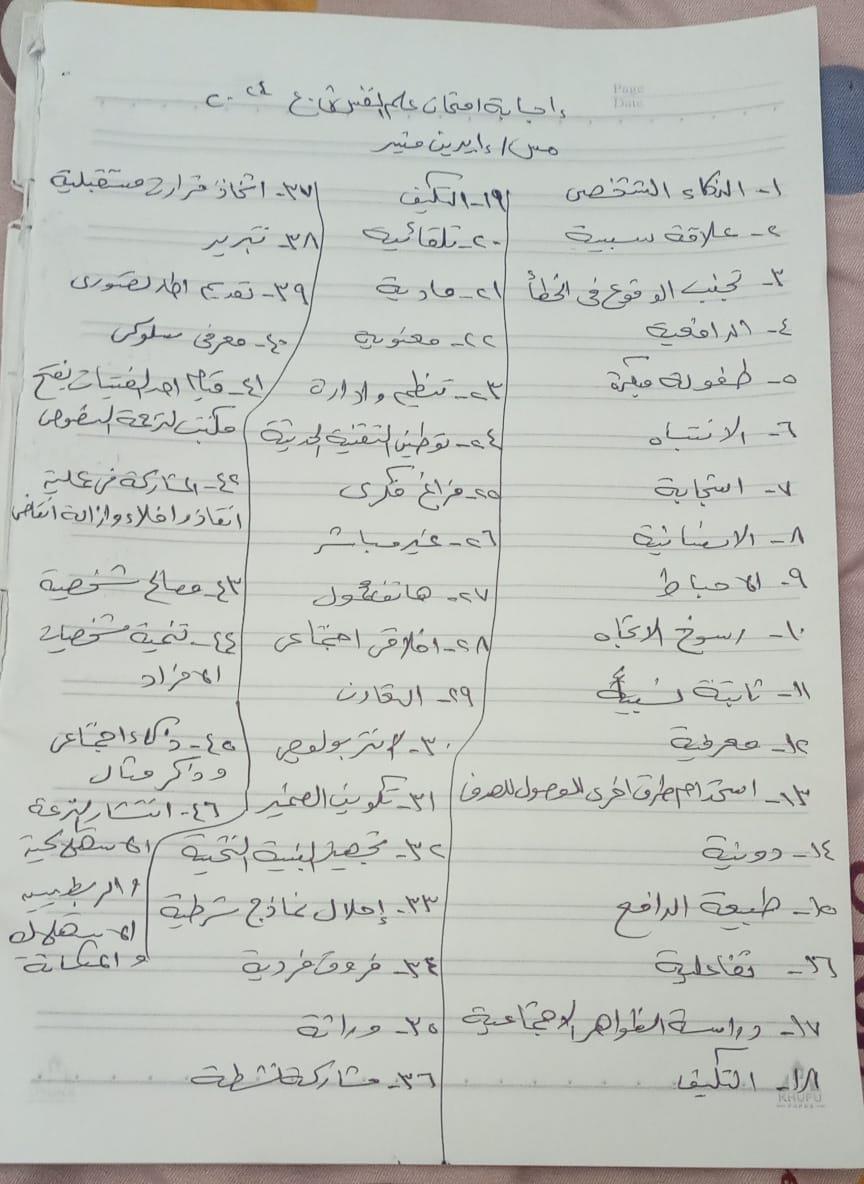 إجابة امتحان علم النفس ث.ع ٢٠٢٤
مس / إيرين منير
Page
Date
١- الذكاء الشخصى
٢- علاقة سببية
٣- تجنب الوقوع فى الخطأ
٤- الدافعية
٥- طفولة مبكرة
٦- الانتباه
٧- استجابة
٨- الانسانية
٩- الاحباط
١٠- رسوخ الاتجاه
١١- ثابتة نسبيًا
١٢- معرفية
١٣- استخدام طرق اخرى للوصول للهدف
١٤- دونية
١٥- طبيعة الدافع
١٦- تفاعلية
١٧- دراسة الظواهر الاجتماعية
١٨- التكيف
١٩- التكيف
٢٠- تلقائية
٢١- مادية
٢٢- معنوية
٢٣- تنظيم وادارة
٢٤- توطين التقنية الحديثة
٢٥- فراغ فكرى
٢٦- غير مباشر
٢٧- هاتف محمول
٢٨- اخلاقى اجتماعى
٢٩- التعاون
٣٠- انثربولوجى
٣١- تكوين الضمير
٣٢- تجهيز البنية التحتية
٣٣- إحلال نماذج شرطية
٣٤- فروق فردية
٣٥- وراثة
٣٦- مشاركة نشطة
٣٧- اتخاذ قرارات مستقبلية
٣٨- تبرير
٣٩- تقديم الحل الفورى
٤٠- معرفى سلوكى
٤١- قيام احد الفتيات بفتح
مكتب لترجمة النصوص
٤٢- المشاركة فى عملية
انقاذ واخلاء وازالة انقاض
٤٣- مصالح شخصية
٤٤- تنمية شخصيات
الافراد
٤٥- ذكاء اجتماعى
وذاكر مثال
٤٦- انتشار النزعة
الاستهلاكية
والربط بين
الاستهلاك
والمكانة
KHUFU